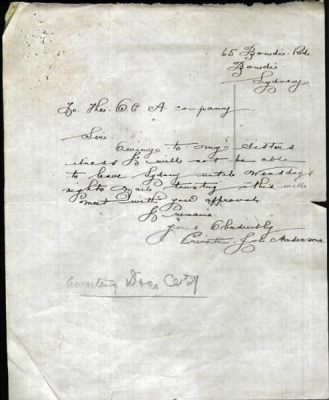 65 Bondi Rd
Bondi
Sydney
To The O C A. company
Sir
Owing to my Sisters
illness I will not be able
to leave Sydney until Monday
nights Mail trusting this will
meet with your approval
I remain
yours Obediently
Private J. E. Anderson
Awaiting Docs Certif